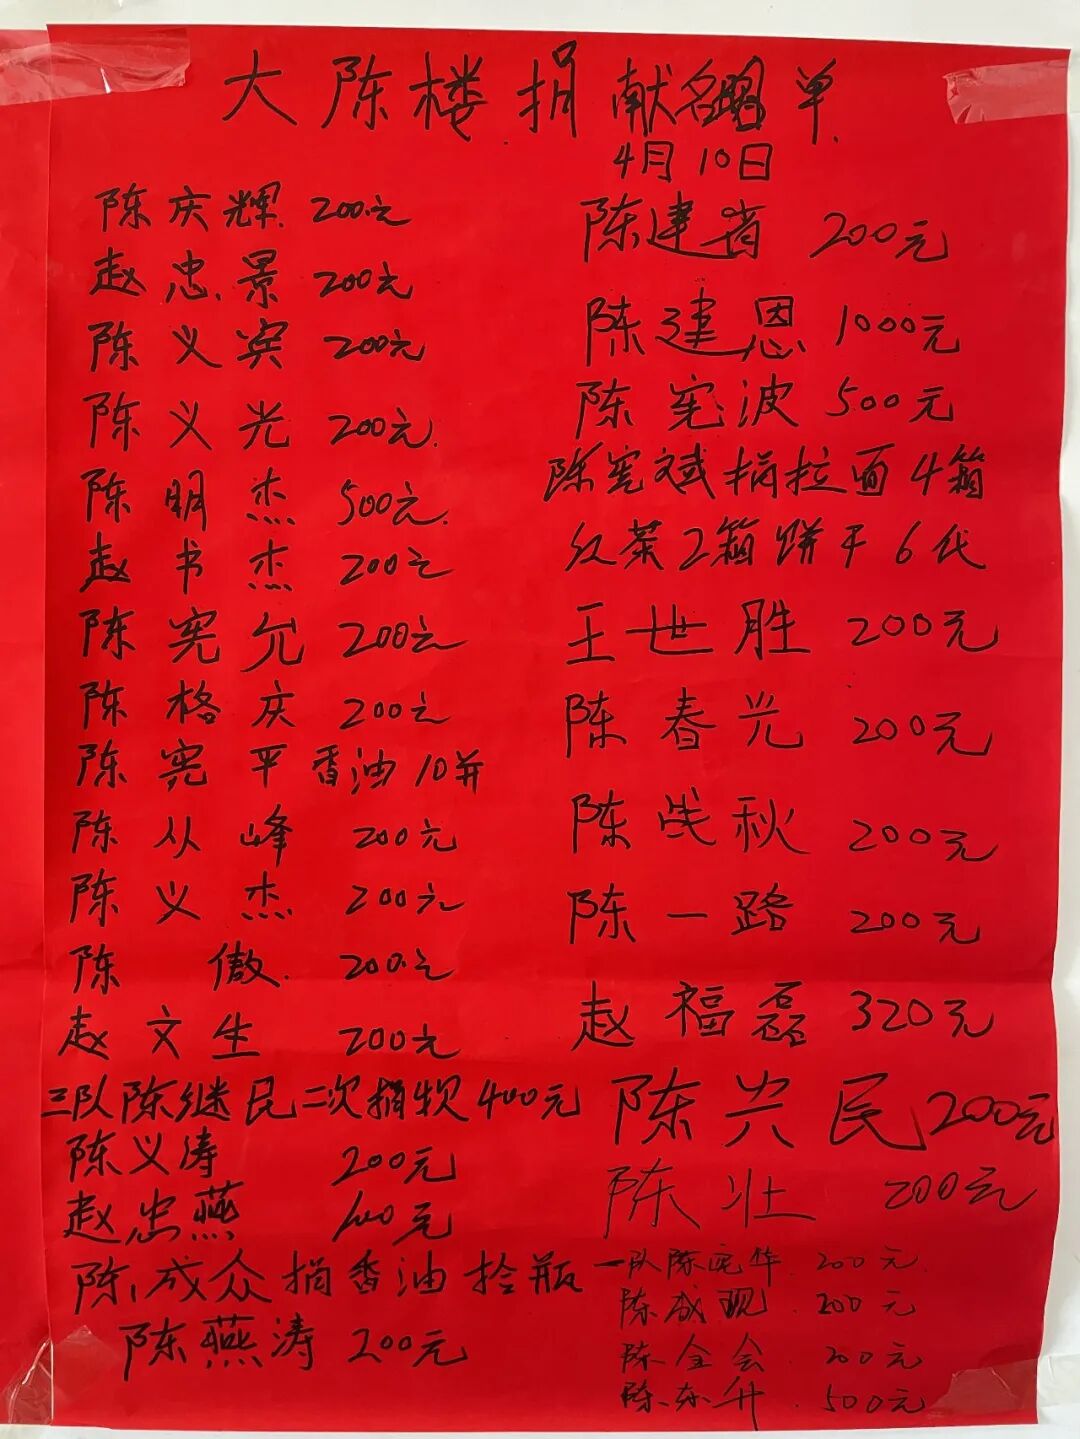 大陈楼捐献名单
4月10日
陈庆辉 200元
赵忠景 200元
陈义宾 200元
陈义光 200元
陈明杰 500元
赵书杰 200元
陈宪允 200元
陈格庆 200元
陈宪平 香油10并
陈从峰 200元
陈义杰 200元
陈傲 200元
赵文生 200元
三队陈继民二次捐现400元
陈义涛 200元
赵忠燕 100元
陈成众捐香油拾瓶
陈燕涛 200元
陈建省 200元
陈建恩 1000元
陈宪波 500元
陈宪斌捐拉面4箱
红茶2箱饼干6代
王世胜 200元
陈春光 200元
陈战秋 200元
陈一路 200元
赵福磊 320元
陈兴民 200元
陈壮 200元
一队陈宪华 200元
陈成现 200元
陈全会 200元
陈东升 500元